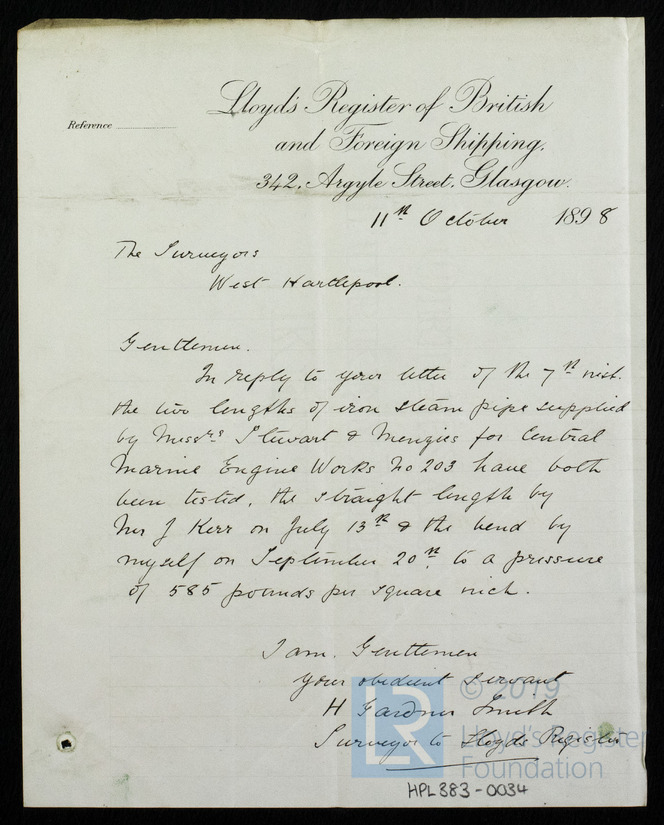 Lloyd's Register of British
and Foreign Shipping.
Reference
342, Argyle Street, Glasgow.
11th October 1898
The Surveyors
West Hartlepool.
Gentlemen.
In reply to your letter of the 7th inst.
the two lengths of iron steam pipe supplied
by Messrs Stewart & Menzies for Central
Marine Engine Works No 203 have both
been tested, the straight length by
Mr J Kerr on July 13th & the bend by
myself on September 20th to a pressure
of 585 pounds per square inch.
I am. Gentlemen
your obedient servant
H Gardner Smith
Surveyor to Lloyds Register
LR © 2019
Lloyd's Register
Foundation
HPL383-0034